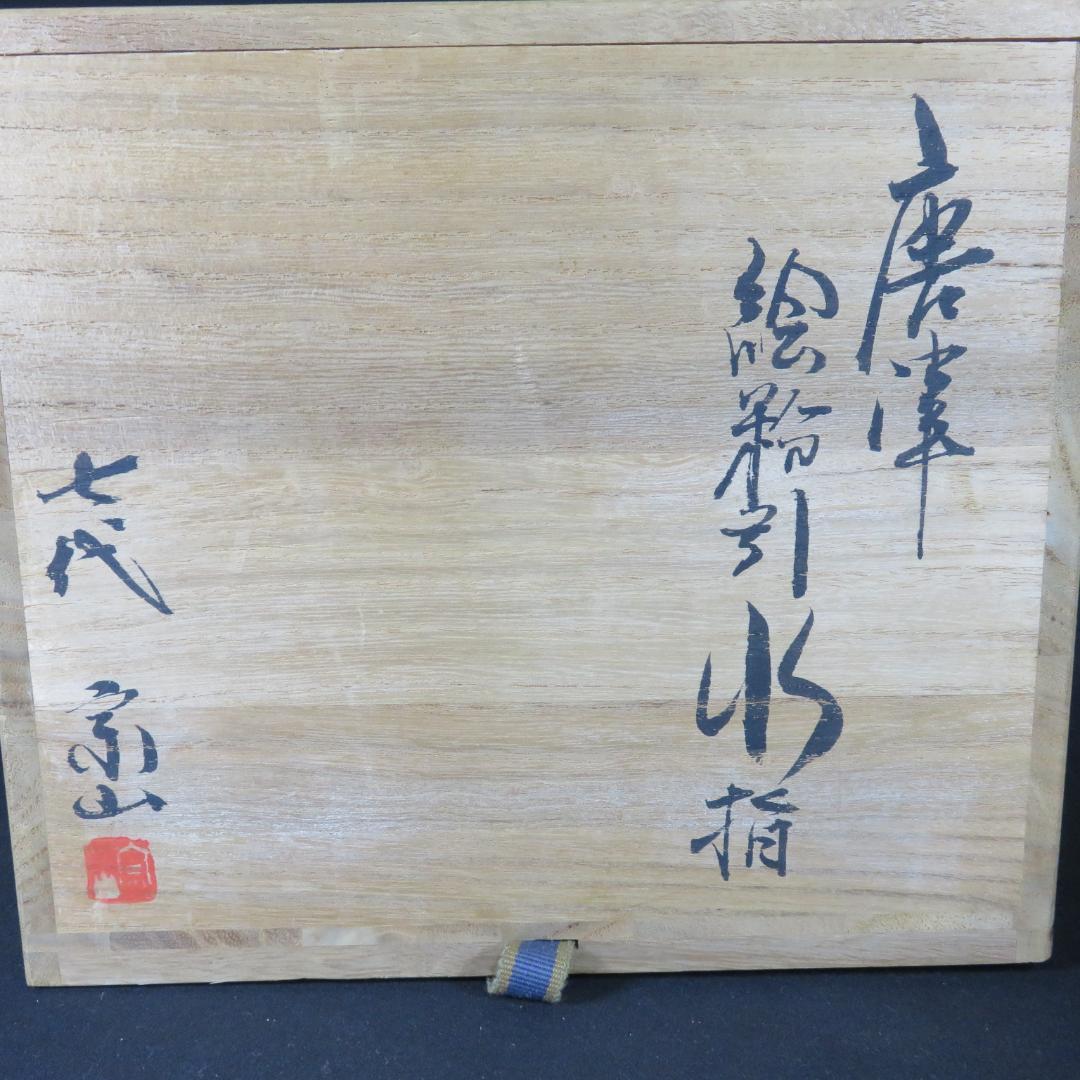 唐津
絵粉引水指
七代 宗山